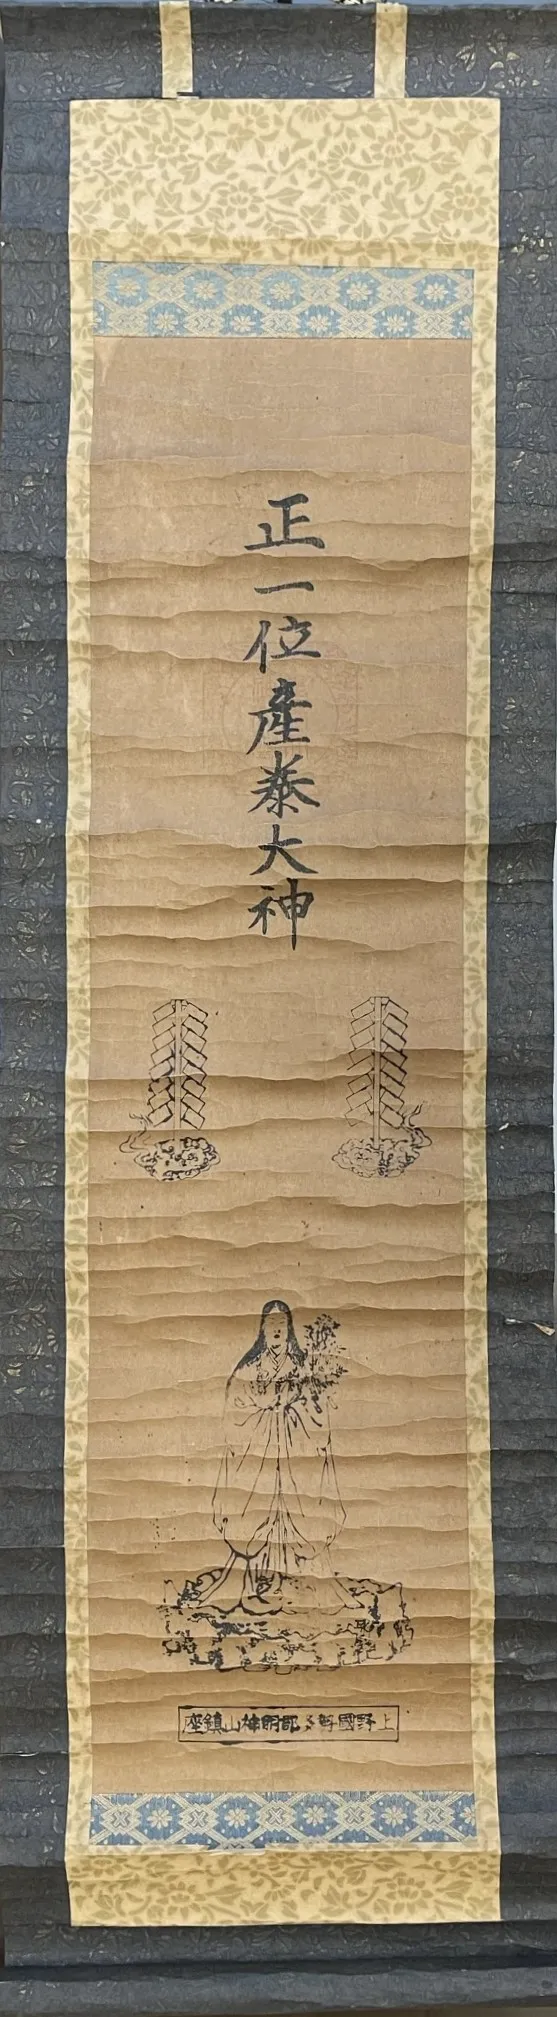 正一位產泰大神
上野國勢多郡明神山鎮座